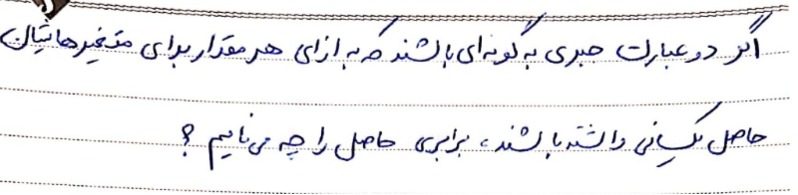 اگر دو عبارت جبری به گونه‌ای باشند که به ازای هر مقدار برای متغیرهایشان
حاصل یکسانی داشته باشند، برابری حاصل را چه می‌نامیم ؟